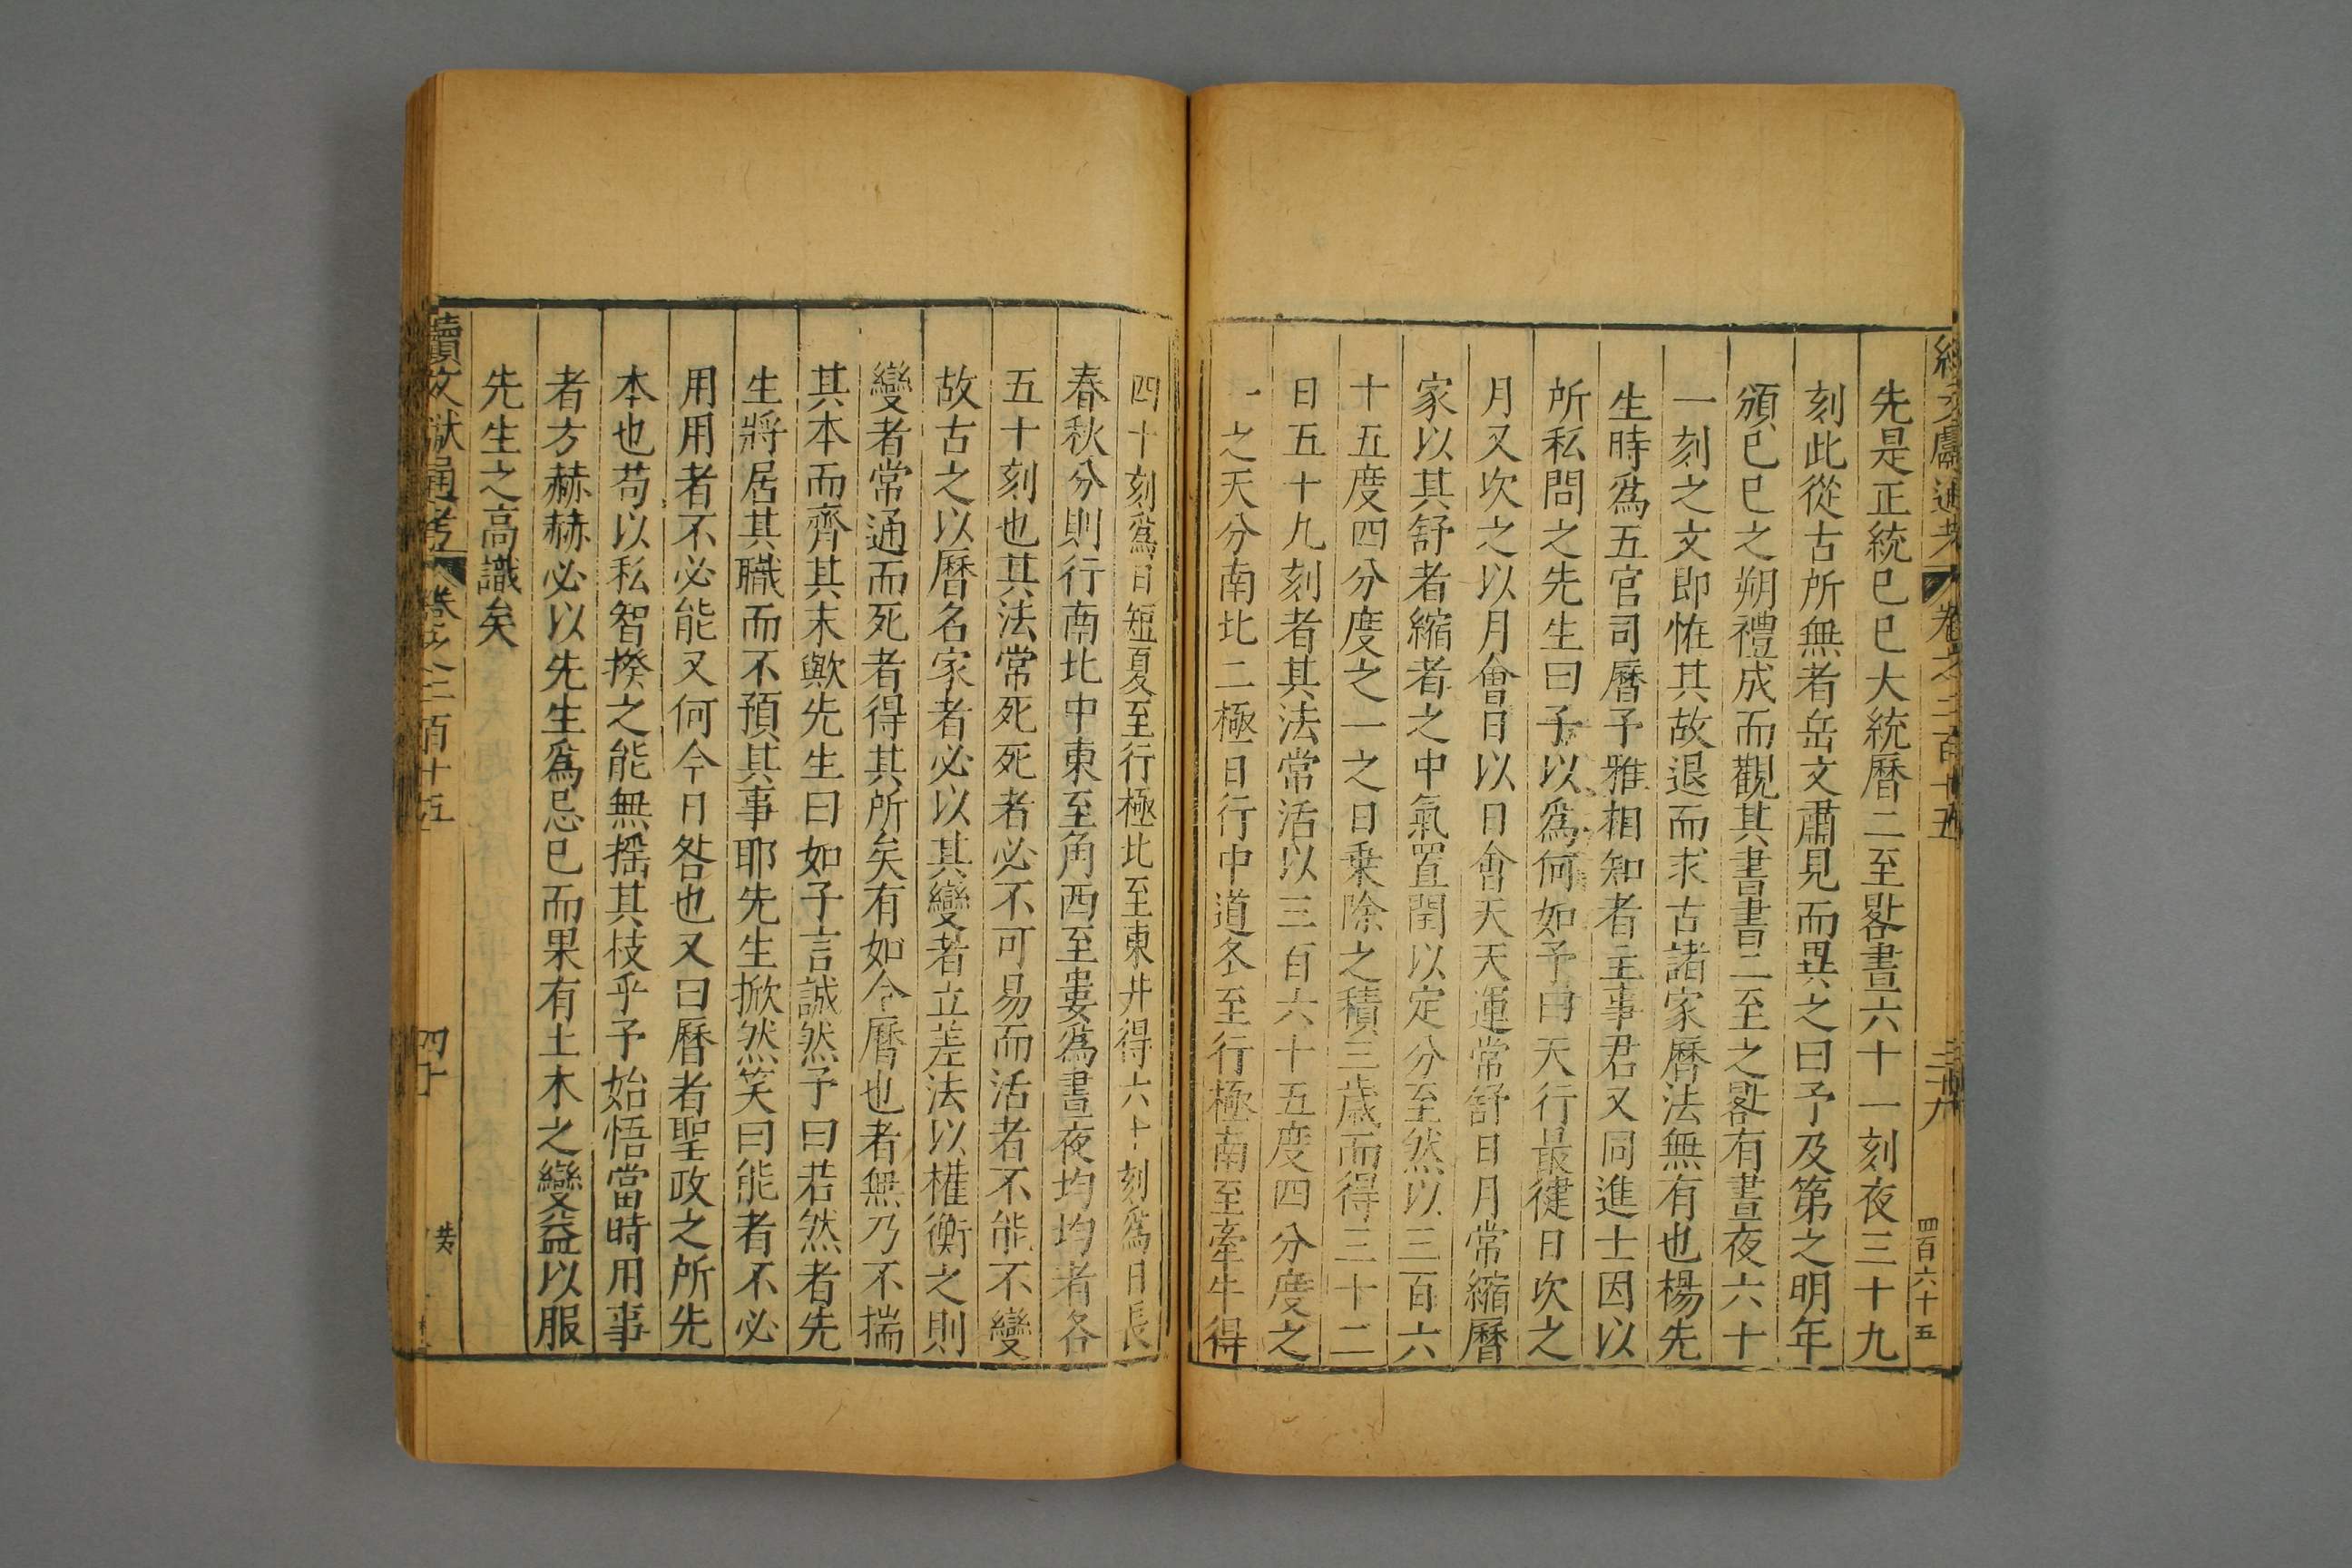 續文獻通考 卷之二百十五 三十九 四百六十五
先是正統已巳大統曆二至晷晝六十一刻夜三十九
刻此從古所無者岳文肅見而異之曰予及第之明年
頒已巳之朔禮成而觀其書書二至之晷有晝夜六十
一刻之文即恠其故退而求古諸家曆法無有也楊先
生時爲五官司曆予雅相知者主事君又同進士因以
所私問之先生曰子以爲何如予曰天行最徤日次之
月又次之以月會日以日會天天運常舒日月常縮曆
家以其舒者縮者之中氣置閏以定分至然以三百六
十五度四分度之一之日乗除之積三歲而得三十二
日五十九刻者其法常活以三百六十五度四分度之
一之天分南北二極日行中道冬至行極南至牽牛得
四十刻爲日短夏至行極北至東井得六十刻爲日長
春秋分則行南北中東至角西至婁爲晝夜均均者各
五十刻也其法常死死者必不可易而活者不能不變
故古之以曆名家者必以其變者立差法以權衡之則
變者常通而死者得其所矣有如今曆也者無乃不揣
其本而齊其末歟先生曰如子言誠然予曰若然者先
生將居其職而不預其事耶先生掀然笑曰能者不必
用用者不必能又何今日咎也又曰曆者聖政之所先
本也苟以私智揆之能無揺其枝乎予始悟當時用事
者方赫赫必以先生爲忌已而果有土木之變益以服
先生之高識矣
續文獻通考 卷之二百十五 四十